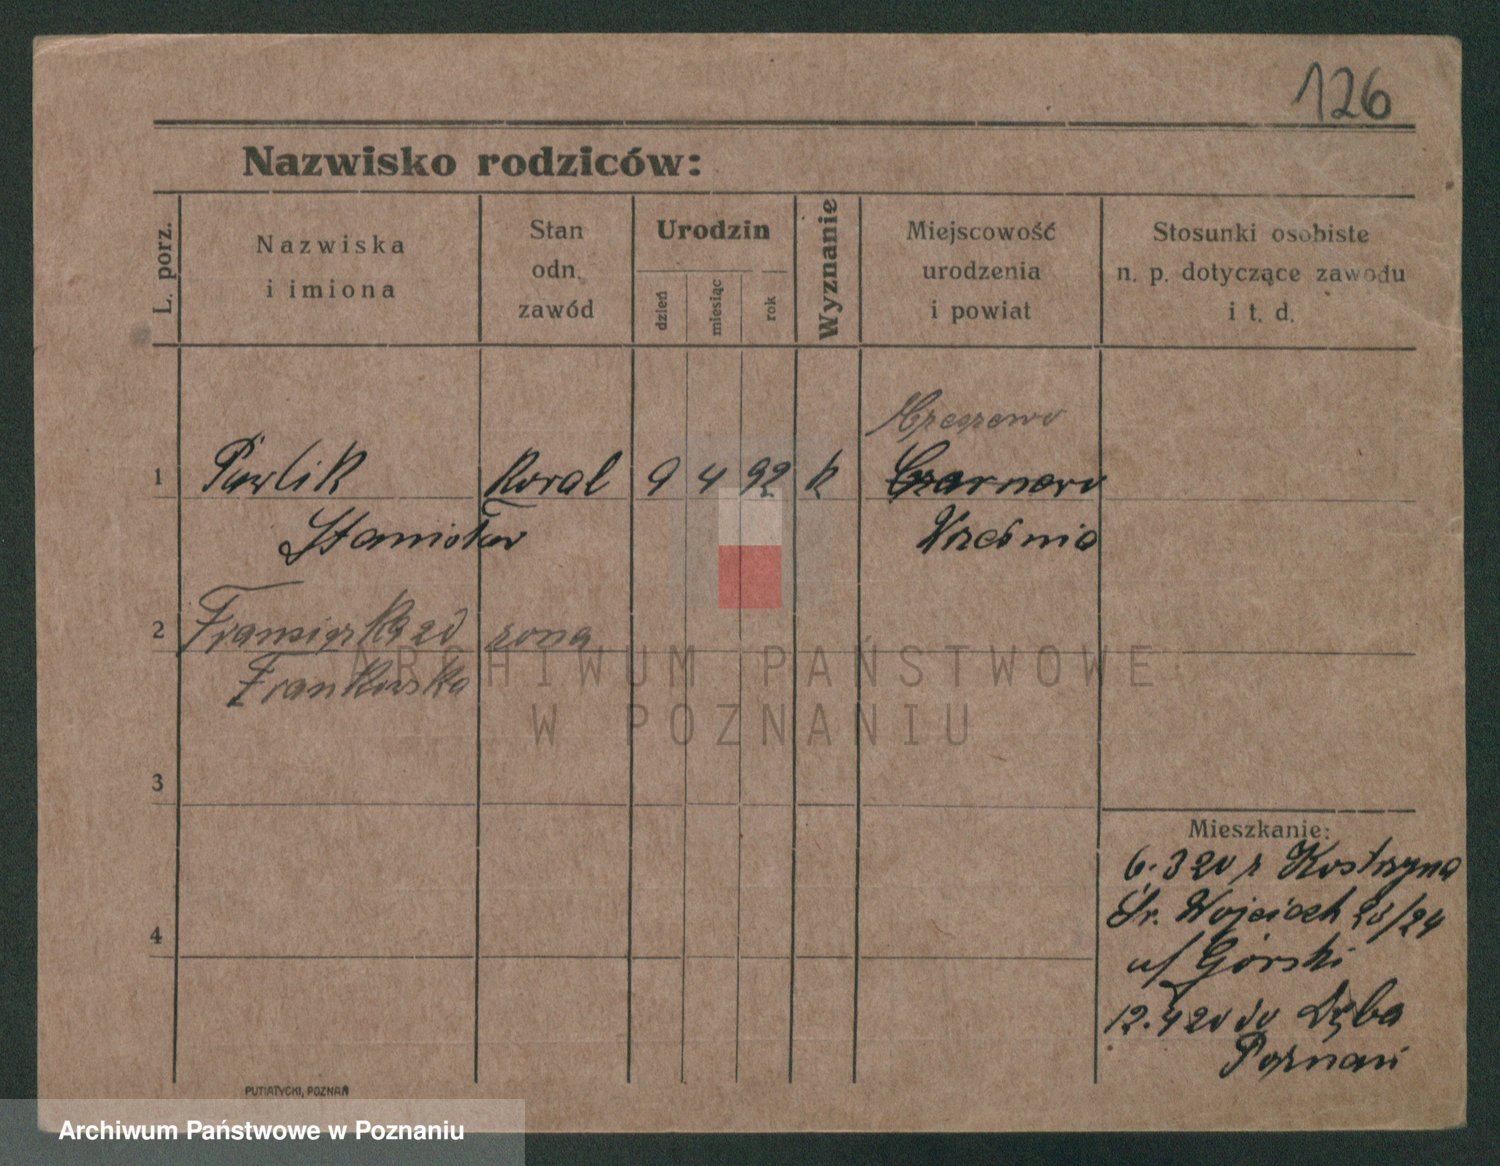 126
Nazwisko rodziców:
L. porz.
Nazwiska
i imiona
Stan
odn.
zawód
Urodzin
dzień
miesiąc
rok
Wyznanie
Miejscowość
urodzenia
i powiat
Stosunki osobiste
n. p. dotyczące zawodu
i t. d.
1 Pawlik Koval 9 4 92 k Czarnowo
Stanisław Wrześnio
2 żona
Frankowska
3
4
Mieszkanie:
6.3 20 z Kostrzyna
Śr. Wojciech 28/24
u/ Górski
12.4 20 do Dęba
Poznań
PUTIATYCKI, POZNAŃ
ARCHIWUM PAŃSTWOWE
W POZNANIU
Archiwum Państwowe w Poznaniu